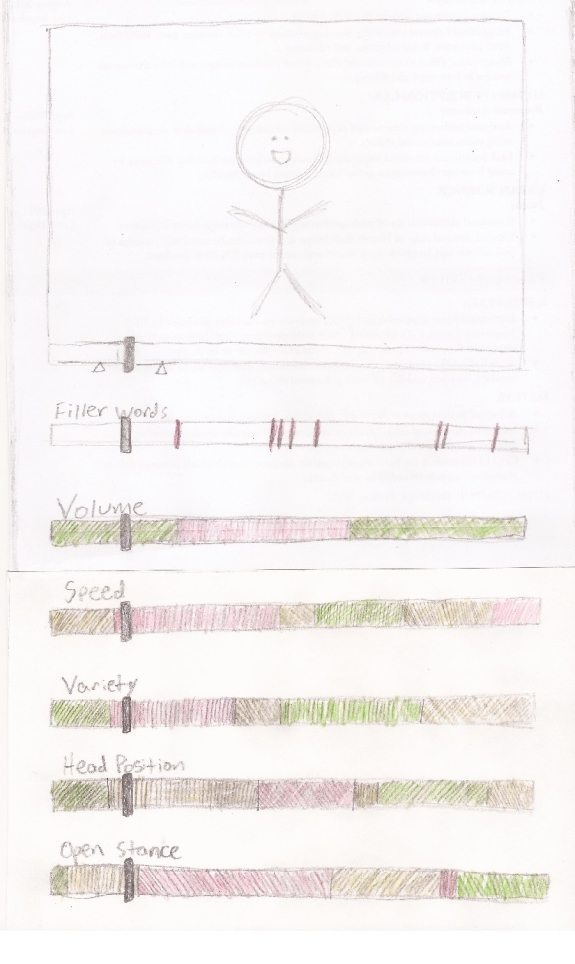 Filler words
Volume
Speed
Variety
Head Position
Open Stance